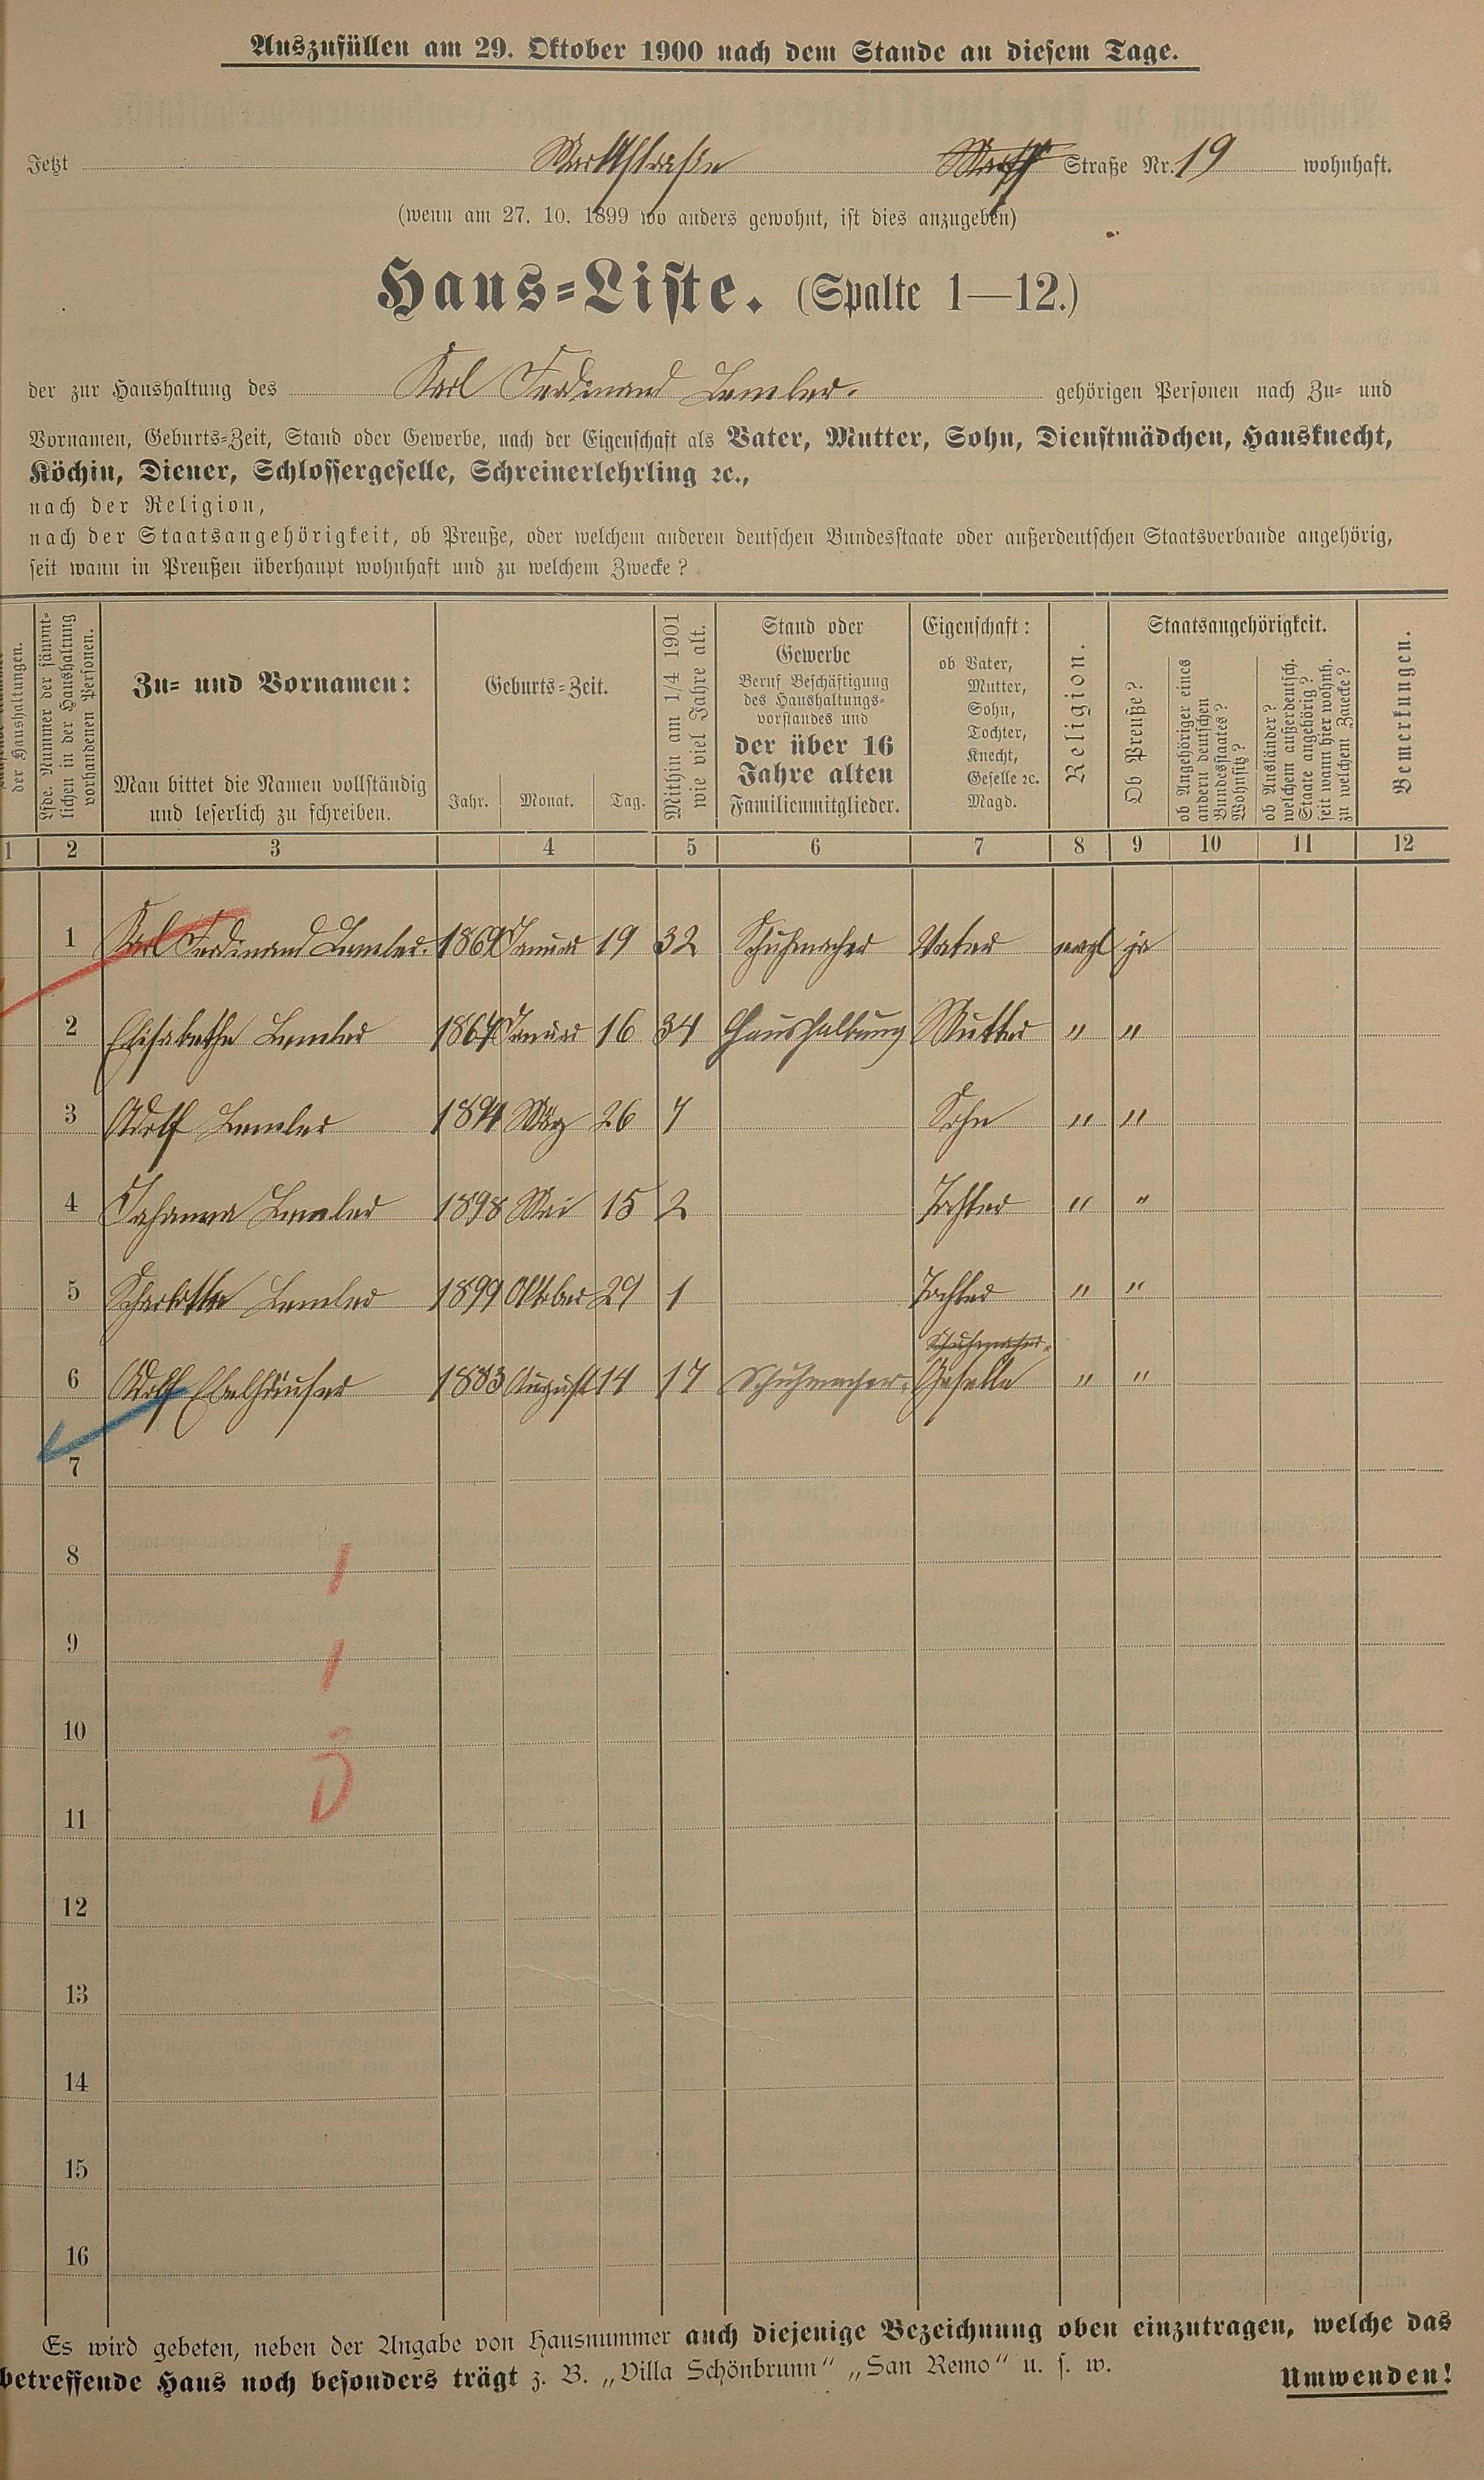 Auszufüllen am 29. Oktober 1900 nach dem Stande an diesem Tage.
Jetzt Marktstraße Straße Nr. 19 wohnhaft.
(wenn am 27. 10. 1899 wo anders gewohnt, ist dies anzugeben)
Haus-Liste. (Spalte 1—12.)
der zur Haushaltung des Karl Ferdinand Lemler. gehörigen Personen nach Zu- und
Vornamen, Geburts-Zeit, Stand oder Gewerbe, nach der Eigenschaft als Vater, Mutter, Sohn, Dienstmädchen, Hausknecht,
Köchin, Diener, Schlossergeselle, Schreinerlehrling ꝛc.,
nach der Religion,
nach der Staatsangehörigkeit, ob Preuße, oder welchem anderen deutschen Bundesstaate oder außerdeutschen Staatsverbande angehörig,
seit wann in Preußen überhaupt wohnhaft und zu welchem Zwecke?
der Haushaltungen.
Lfde. Nummer der sämmt-
lichen in der Haushaltung
vorhandenen Personen.
Zu- und Vornamen:
Man bittet die Namen vollständig
und leserlich zu schreiben.
Geburts-Zeit.
Jahr. Monat. Tag.
Mithin am 1/4 1901
wie viel Jahre alt.
Stand oder
Gewerbe
Beruf Beschäftigung
des Haushaltungs-
vorstandes und
der über 16
Jahre alten
Familienmitglieder.
Eigenschaft:
ob Vater,
Mutter,
Sohn,
Tochter,
Knecht,
Geselle ꝛc.
Magd.
Religion.
Staatsangehörigkeit.
Ob Preuße?
ob Angehöriger eines
andern deutschen
Bundesstaates?
Wohnsitz?
ob Ausländer?
welchem außerdeutsch.
Staate angehörig?
seit wann hier wohnh.
zu welchem Zwecke?
Bemerkungen.
1 2 3 4 5 6 7 8 9 10 11 12
1 Karl Ferdinand Lemler. 1869 Januar 19 32 Schuhmacher Vater evgl ja
2 Elisabethe Lemler 1867 Januar 16 34 Haushaltung Mutter " "
3 Adolf Lemler 1894 März 26 7 Sohn " "
4 Johanna Lemler 1898 Mai 15 2 Tochter " "
5 Scharlotte Lemler 1899 Oktober 29 1 Tochter " "
Schuhmacher-
6 Adolf Ebelhäuser 1883 August 14 17 Schuhmacher. Geselle " "
7
8
9
10
11
12
13
14
15
16
Es wird gebeten, neben der Angabe von Hausnummer auch diejenige Bezeichnung oben einzutragen, welche das
betreffende Haus noch besonders trägt z. B. „Villa Schönbrunn" „San Remo" u. s. w.
Umwenden!